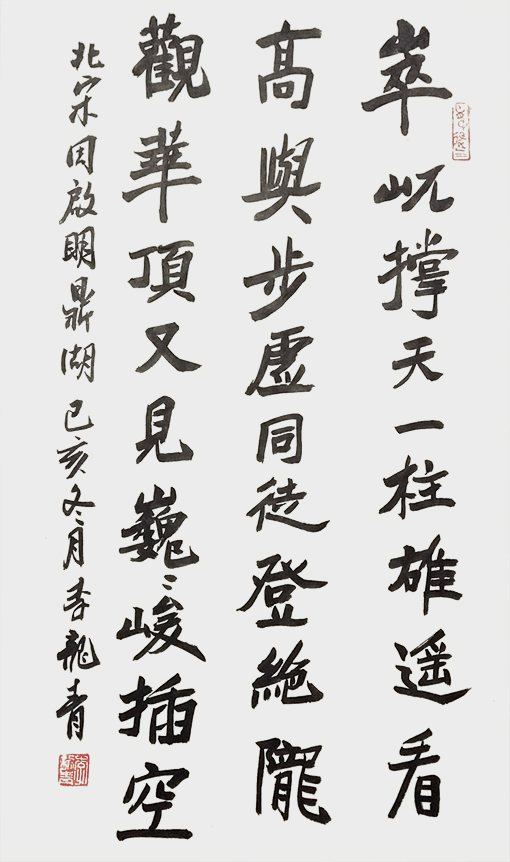 崒屼撑天一柱雄遥看
髙與步虛同徒登絶隴
觀華頂又見巍〻峻插空
北宋周啟明鼎湖 己亥冬月李龍青